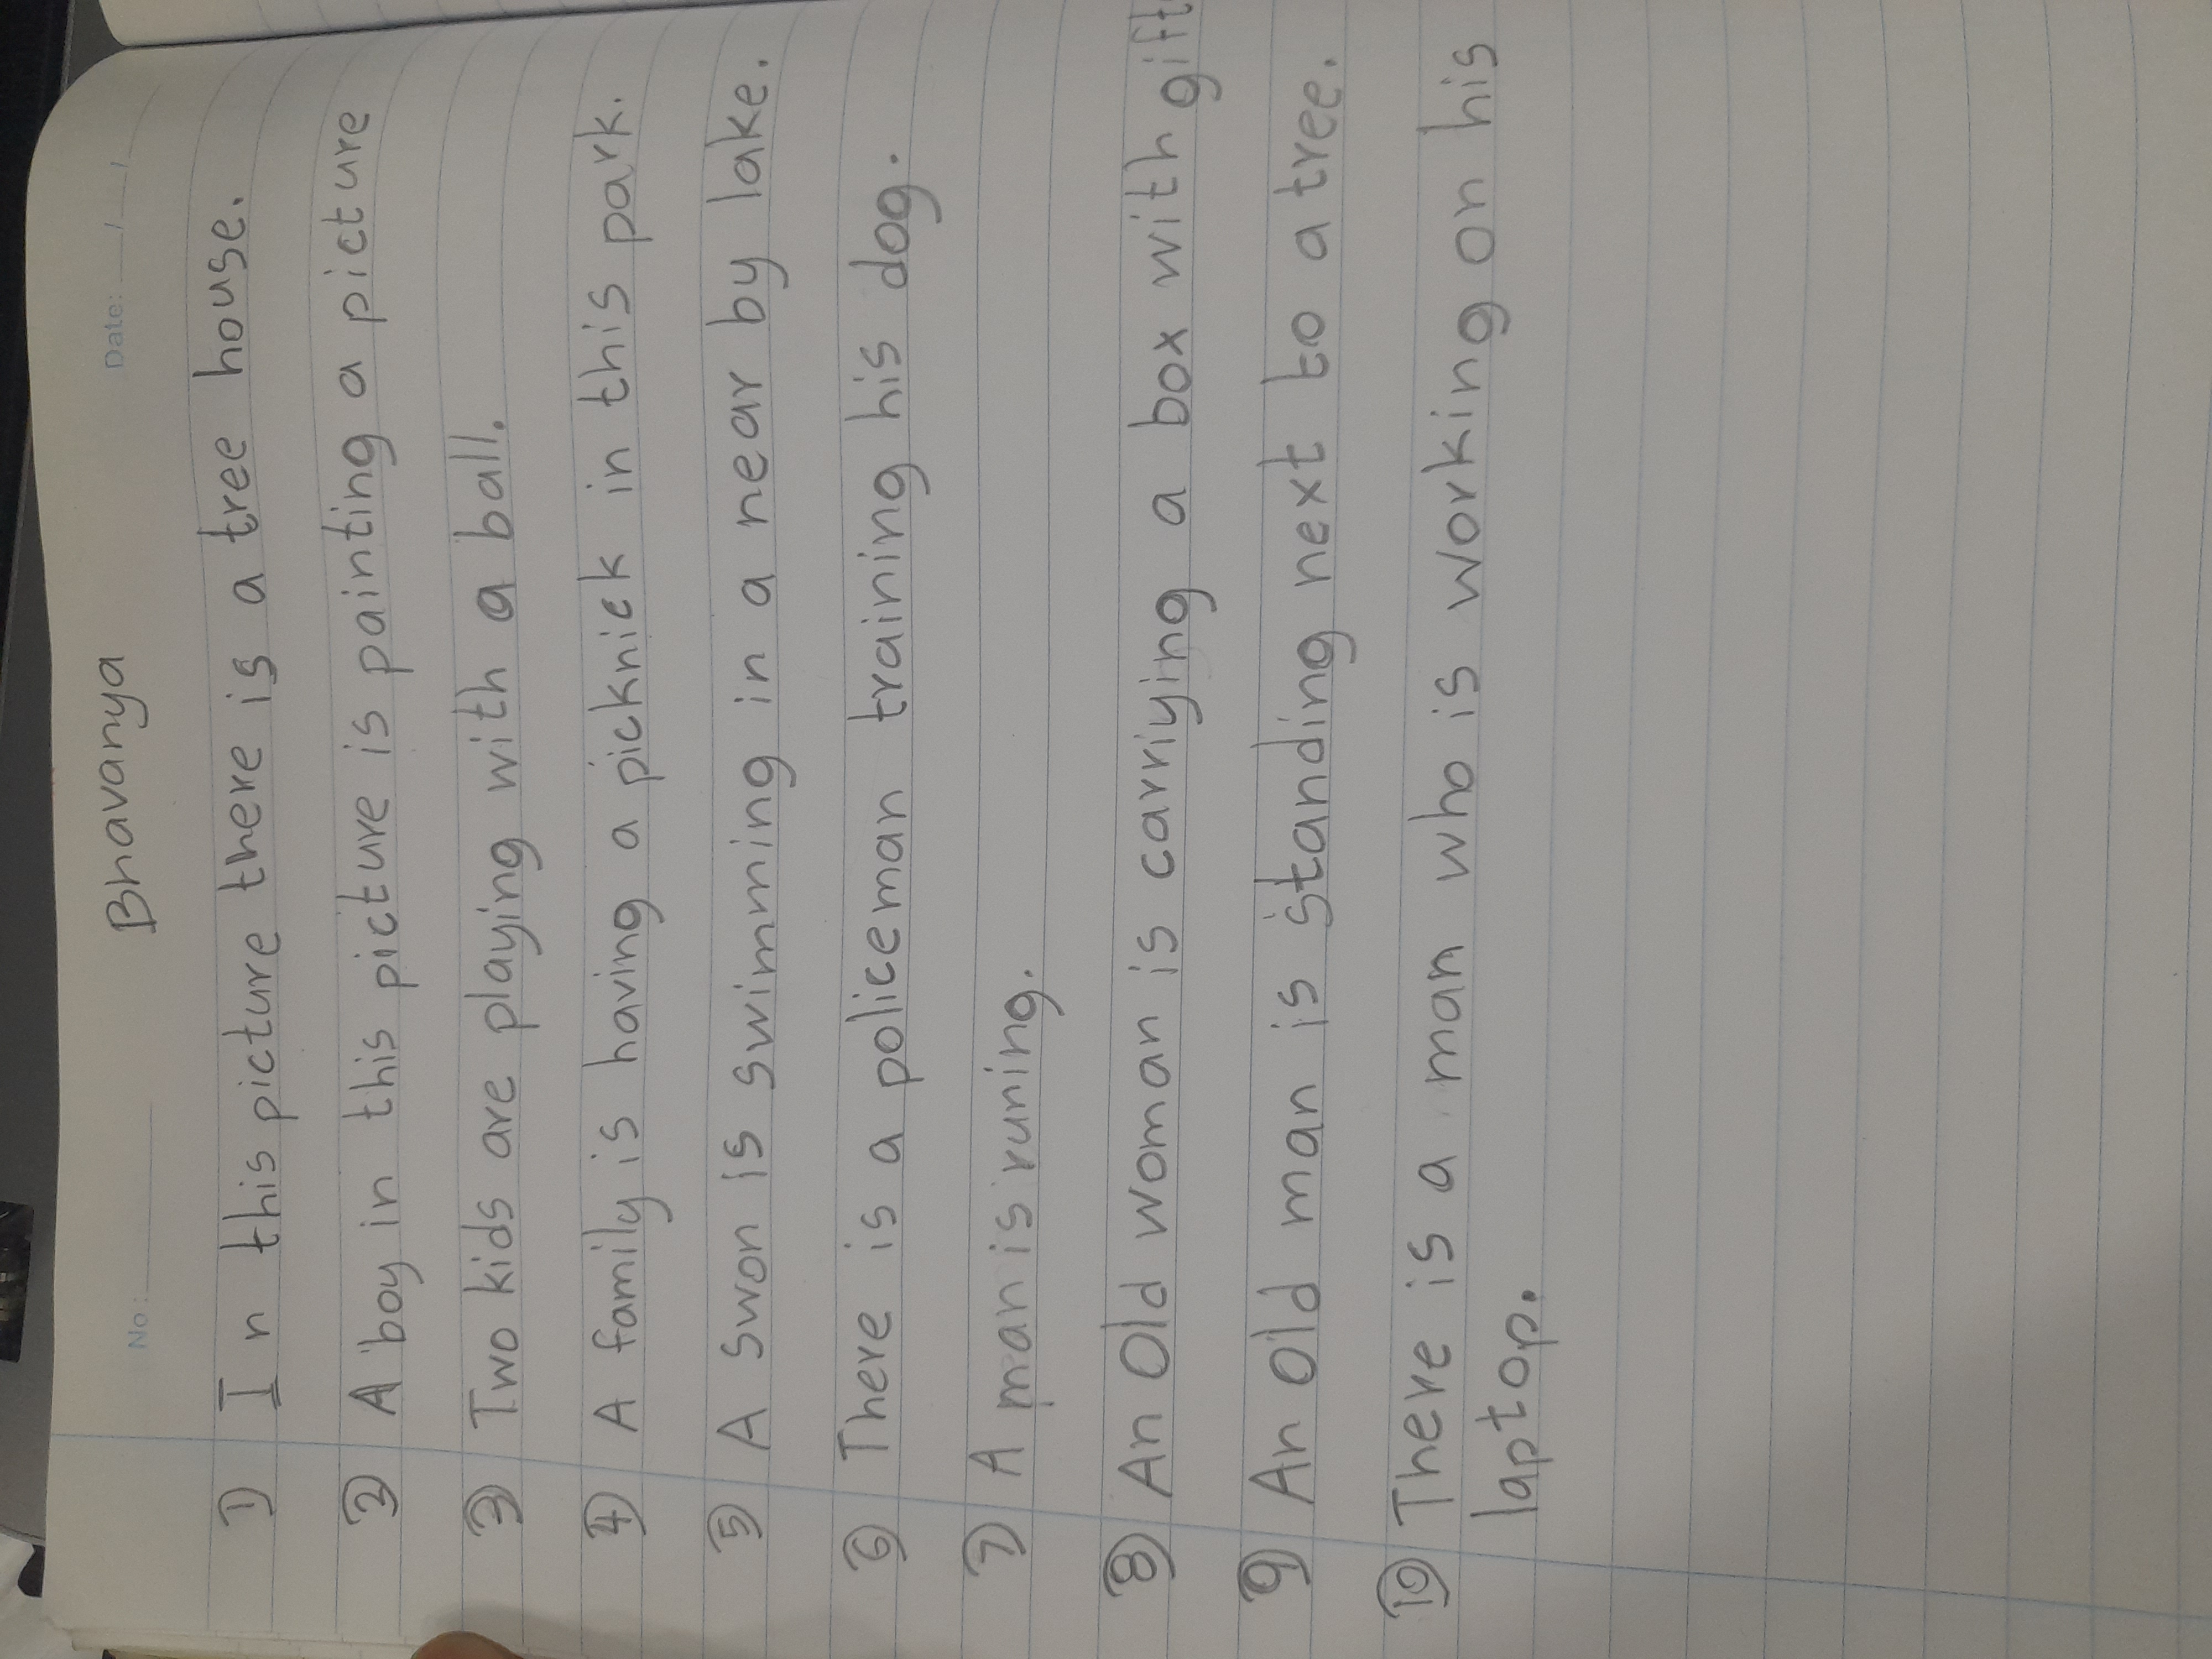 No: Bhavanya Date: / /
1) In this picture there is a tree house.
2) A boy in this picture is painting a picture
3) Two kids are playing with a ball.
4) A family is having a picknick in this park.
5) A swon is swimming in a near by lake.
6) There is a policeman training his dog.
7) A man is runing.
8) An Old woman is carriying a box with gift
9) An Old man is standing next to a tree.
10) There is a man who is working on his
laptop.